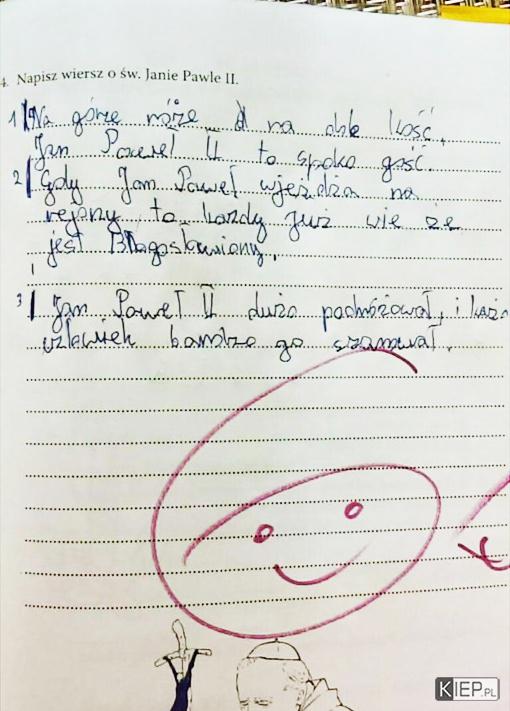 4. Napisz wiersz o św. Janie Pawle II.
1 Na górze róże a na dole kość,
Jan Paweł II to spoko gość.
2 Gdy Jan Paweł wjeżdża na
rejony to każdy już wie że
jest Błagosławiony.
3 Jan Paweł II dużo podróżował, i
człowiek bardzo go szanował.
KIEP.PL